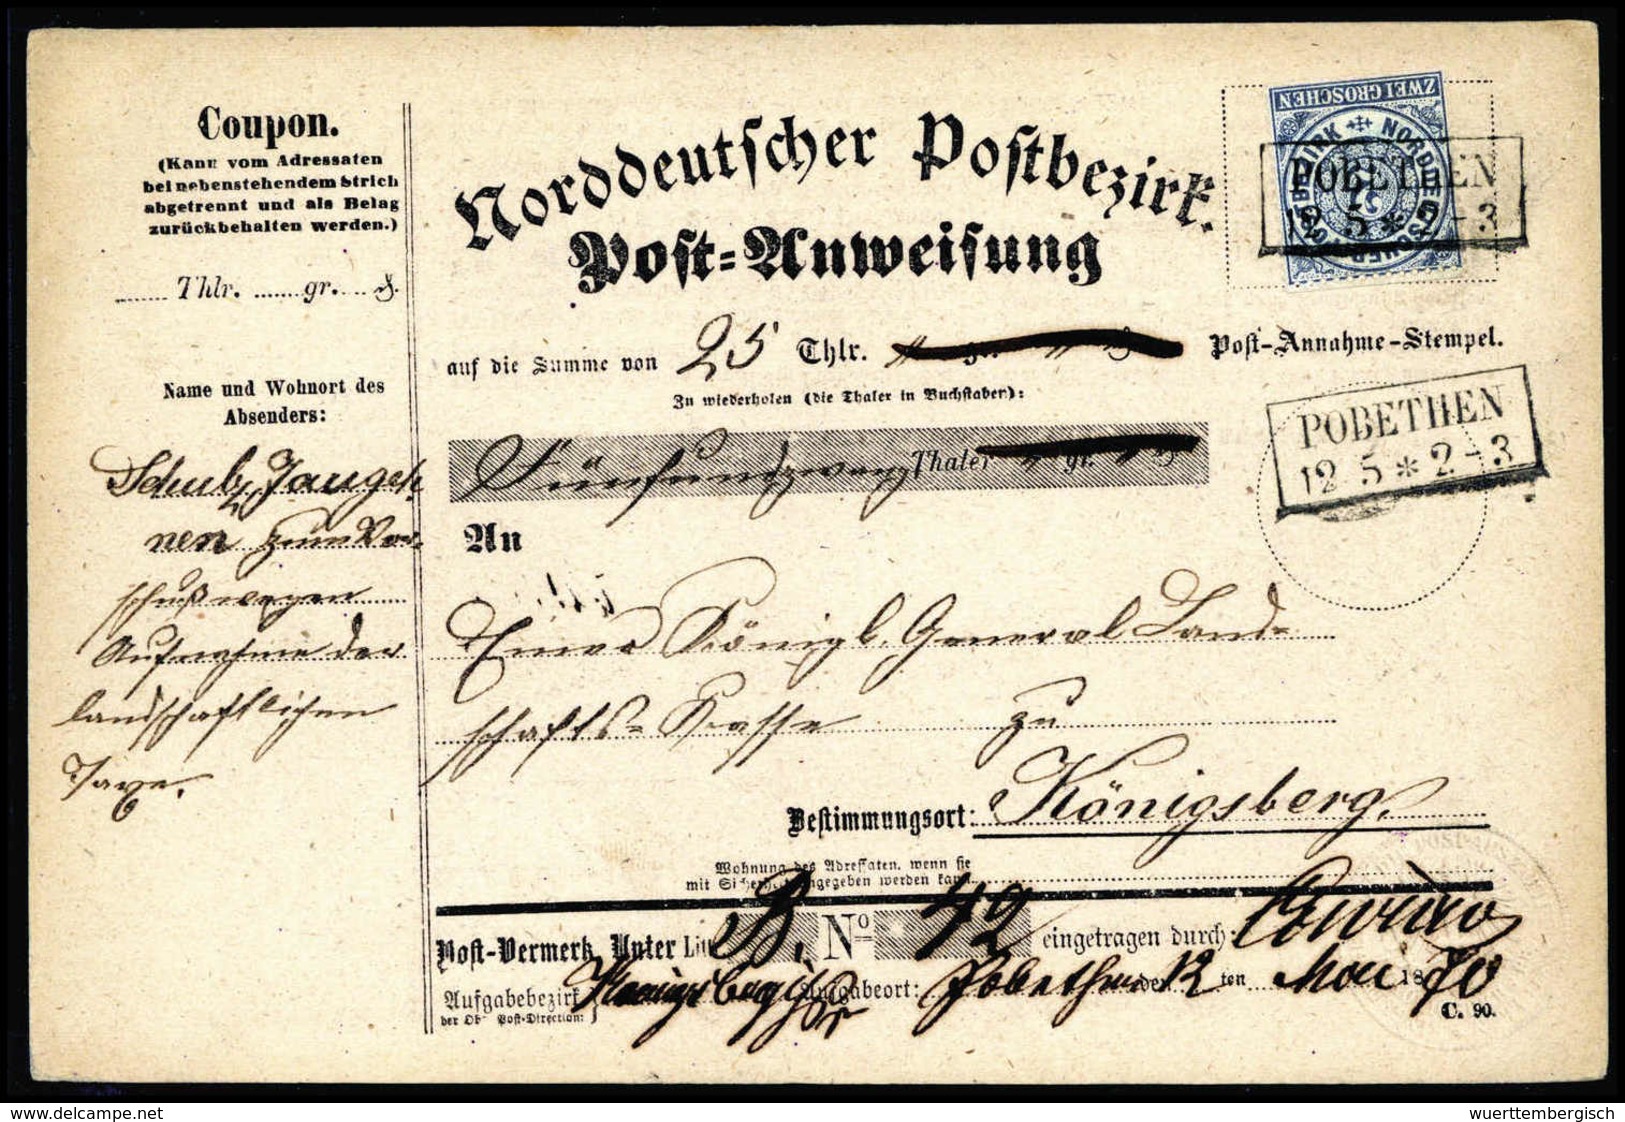 Coupon.
(Kann vom Adressaten
bei nebenstehendem Strich
abgetrennt und als Belag
zurückbehalten werden.)
Thlr. gr.
Name und Wohnort des
Absenders:
Schulz, Jaugeh
nen zum Vor-
schuß wegen
Aufnahme der
landschaftlichen
Taxe.
Norddeutscher Postbezirk.
Post-Anweisung
ZWEI GROSCHEN
NORDDEUTSCHER POSTBEZIRK
2
POBETHEN
12 5 * 2-3
auf die Summe von 25 Thlr.
Post-Annahme-Stempel.
Zu wiederholen (die Thaler in Buchstaben):
Fünfundzwanz Thaler gr.
POBETHEN
12 5 * 2-3
An
Einer Königl. General Land-
schafts-Kasse zu
Bestimmungsort: Königsberg.
Wohnung des Adressaten, wenn sie
mit Sicherheit angegeben werden kann.
Post-Vermerk. Unter Litt. B. No 42 eingetragen durch:
Aufgabebezirk Aufgabeort: Pobethen den 12 ten Mai 1870
der Ob. Post-Direction:
C. 90.
wuerttembergisch